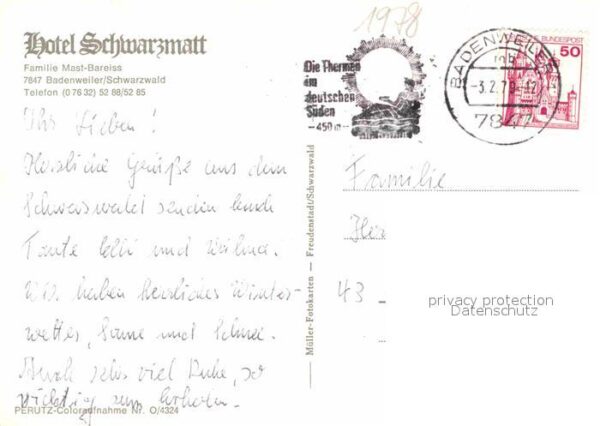 1978
Hotel Schwarzmatt
Familie Mast-Bareiss
7847 Badenweiler/Schwarzwald
Telefon (0 76 32) 52 88/52 85
Die Thermen
im
deutschen
Süden
- 450 m -
BADENWEILER
mb
-3.2.79-12
7847
DEUTSCHE BUNDESPOST
50
Ihr Lieben!
Herzliche Grüße aus dem
Schwarzwald senden Euch
Tante und
Wir haben herrliches Winter-
wetter, Sonne und Schnee.
Auch sehr viel Ruhe, so
wichtig zum Erholen.
PERUTZ-Coloraufnahme Nr. O/4324
Müller-Fotokarten — Freudenstadt/Schwarzwald
Familie
43
privacy protection
Datenschutz